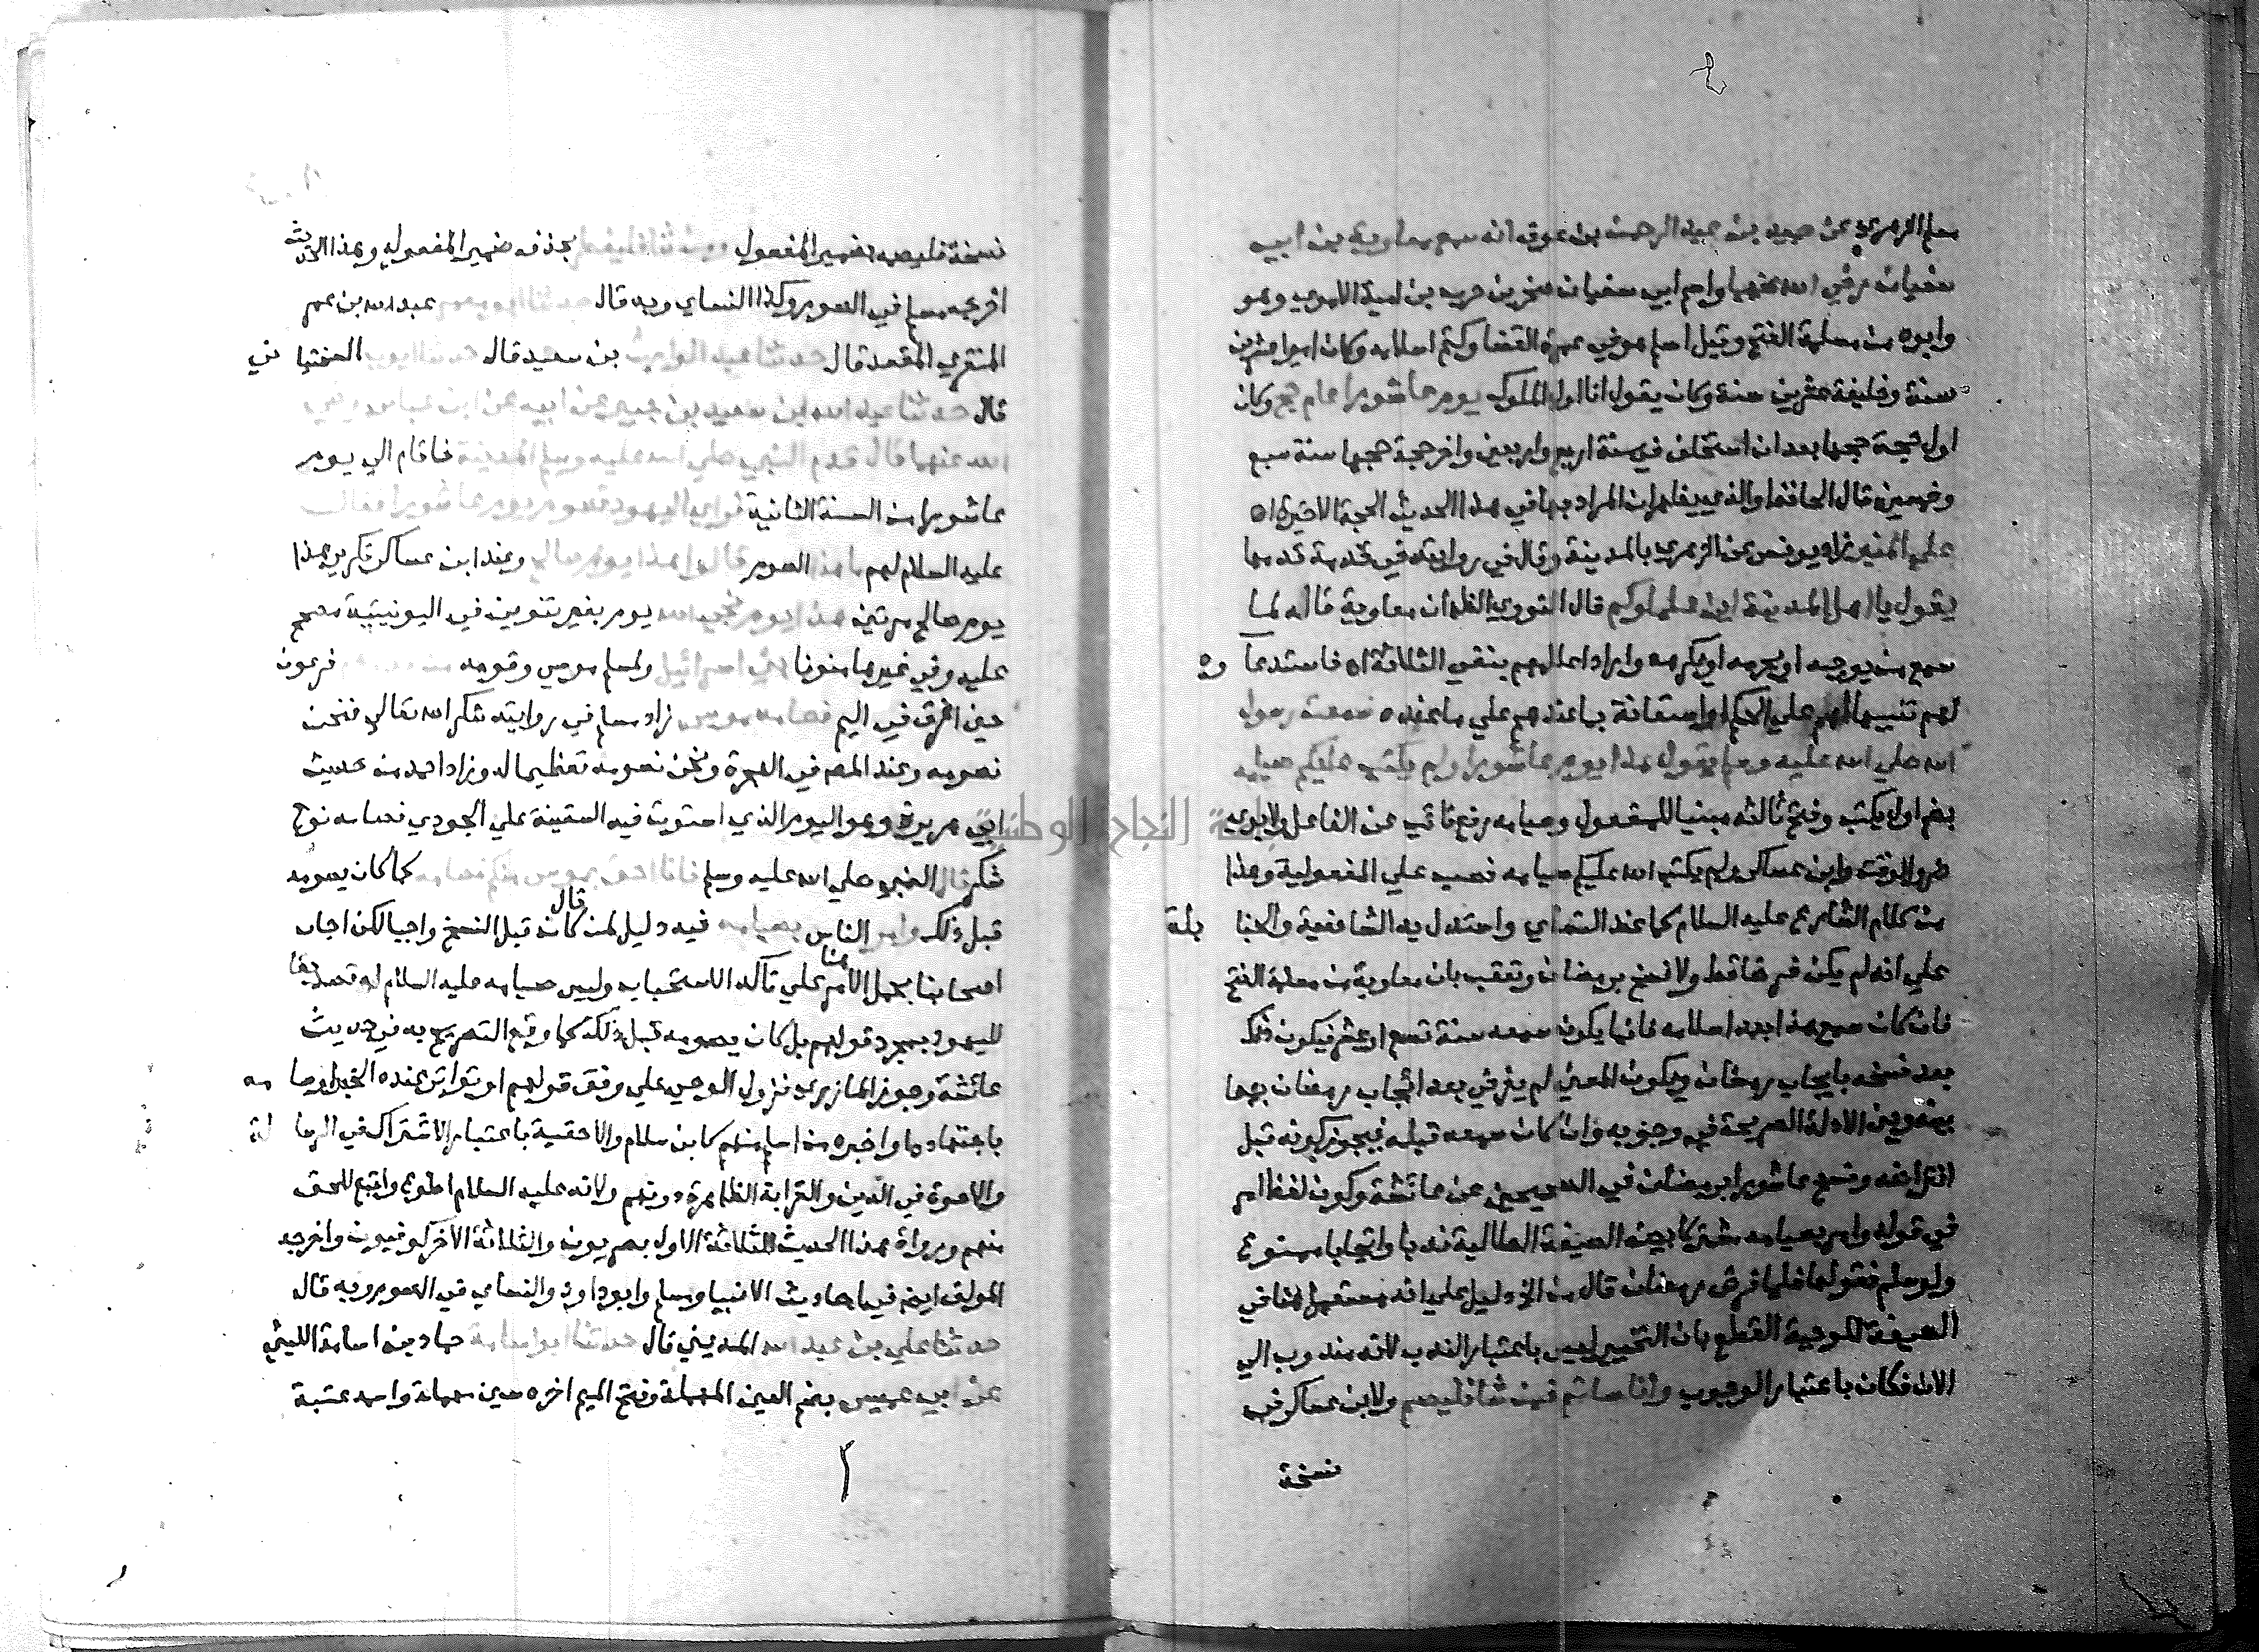 مسلم الزهري عن حميد بن عبد الرحمن بن عوف انه سمع معاوية بن ابي
سفيان رضي الله عنهما واسم ابي سفيان صخر بن حرب بن امية الاموي وهو
وابوه من مسلمة الفتح وقيل اسلم هو في عمرة القضا وكتم اسلامه وكان اميرا عشرين
سنة وخليفة عشرين سنة وكان يقول انا اول الملوك يوم عاشورا عام حج وكان
اول حجة حجها بعد ان استخلف في سنة اربع واربعين واخر حجة حجها سنة سبع
وخمسين قال الحافظ والذي يظهر ان المراد بها في هذا الحديث الحجة الاخيرة اه
علي المنبر زاد يونس عن الزهري بالمدينة وقال في روايته في قدمة قدمها
يقول يا اهل المدينة اين علماوكم قال النووي الظاهر ان معاوية قاله لما
سمع من يوجبه او يحرمه او يكرهه واراد اعلامهم بنفي الثلاثة اه فاستدعاوه
لهم تنبيها لهم علي الحكم او استعانة بما عندهم علي ما عنده سمعت رسول
الله صلي الله عليه وسلم يقول هذا يوم عاشورا ولم يكتب عليكم صيامه
بضم اول يكتب وفتح ثالثه مبنيا للمفعول وصيامه رفع نائب عن الفاعل ولابوي
ذر والوقت وابن عساكر ولم يكتب الله عليكم صيامه نصب علي المفعولية وهذا
من كلام الشارع عليه السلام كما عند النساي واستدل به الشافعية والحنا بلة
علي انه لم يكن فرضا قط ولا نسخ برمضان وتعقب بان معاوية من مسلمة الفتح
فان كان سمع هذا بعد اسلامه فانما يكون سمعه سنة تسع او عشر فيكون ذلك
بعد نسخه بايجاب رمضان ويكون المعني لم يفرض بعد ايجاب رمضان جمعا
بينه وبين الادلة الصريحة في وجوبه وان كان سمعه قبله فيجوز كونه قبل
افتراضه ونسخ عاشورا برمضان في الصحيحين عن عائشة وكون لفظ امر
في قوله وامر بصيامه مشتركا بين الصيغة الطالبة ندبا وايجابا ممنوع
ولو سلم فقولها فلما فرض رمضان قال من الخ دليل علي انه مستعمل هنا في
الصيغة الموجبة للقطع بان التخيير ليس باعتبار الندب لانه مندوب الي
الان فكان باعتبار الوجوب وانا صائم فمن شا فليصم ولابن عساكر في
نسخة
نسخة فليصمه بضمير المفعول ومن شا فليفطر بحذف ضمير المفعول وهذا الحديث
اخرجه مسلم في الصوم وكذا النساي وبه قال حدثنا ابو معمر عبد الله بن عمر
المنقري المقعد قال حدثنا عبد الوارث بن سعيد قال حدثنا ايوب السختيا ني
قال حدثنا عبد الله بن سعيد بن جبير عن ابيه عن ابن عباس رضي
الله عنهما قال قدم النبي صلي الله عليه وسلم المدينة فاقام الي يوم
عاشورا من السنة الثانية فراي اليهود تصوم يوم عاشورا فقال
عليه السلام لهم ما هذا الصوم قالوا هذا يوم صالح وعند ابن عساكر تكرير هذا
يوم صالح مرتين هذا يوم نجي الله يوم بغير تنوين في اليونينية مصحح
عليه وفي غيرها منونا بني اسرائيل ولمسلم موسي وقومه من عدوهم فرعون
حين اغرق في اليم فصامه موسي زاد مسلم في روايته شكرا لله تعالي فنحن
نصومه وعند المص في الهجرة ونحن نصومه تعظيما له وزاد احمد من حديث
ابي هريرة وهو اليوم الذي استوت فيه السفينة علي الجودي فصامه نوح
شكرا قال النبي صلي الله عليه وسلم فانا احق بموسي منكم فصامه كما كان يصومه
قبل ذلك وامر الناس بصيامه فيه دليل لمن قال كان قبل النسخ واجبا لكن اجاب
اصحابنا بحمل الامر هنا علي تأكد الاستحباب وليس صيامه عليه السلام له تصديقا
لليهود بمجرد قولهم بل كان يصومه قبل ذلك كما وقع التصريح به في حديث
عائشة وجوز المازري نزول الوحي علي وفق قولهم او تواتر عنده الخبر او صا مه
باجتهاده او اخبره من اسلم منهم كابن سلام والاحقية باعتبار الاشتراك في الرسا لة
والاخوة في الدين والقرابة الظاهرة دونهم ولانه عليه السلام اطوع واتبع للحق
منهم ورواة هذا الحديث الثلاثة الاول بصريون والثلاثة الاخر كوفيون واخرجه
المولف ايضا في احاديث الانبيا ومسلم وابو داود والنساي في الصوم وبه قال
حدثنا علي بن عبد الله المديني قال حدثنا ابو اسامة حماد بن اسامة الليثي
عن ابي عميس بضم العين المهملة وفتح الميم اخره سين مهملة واسمه عتبة
جامعة النجاح الوطنية